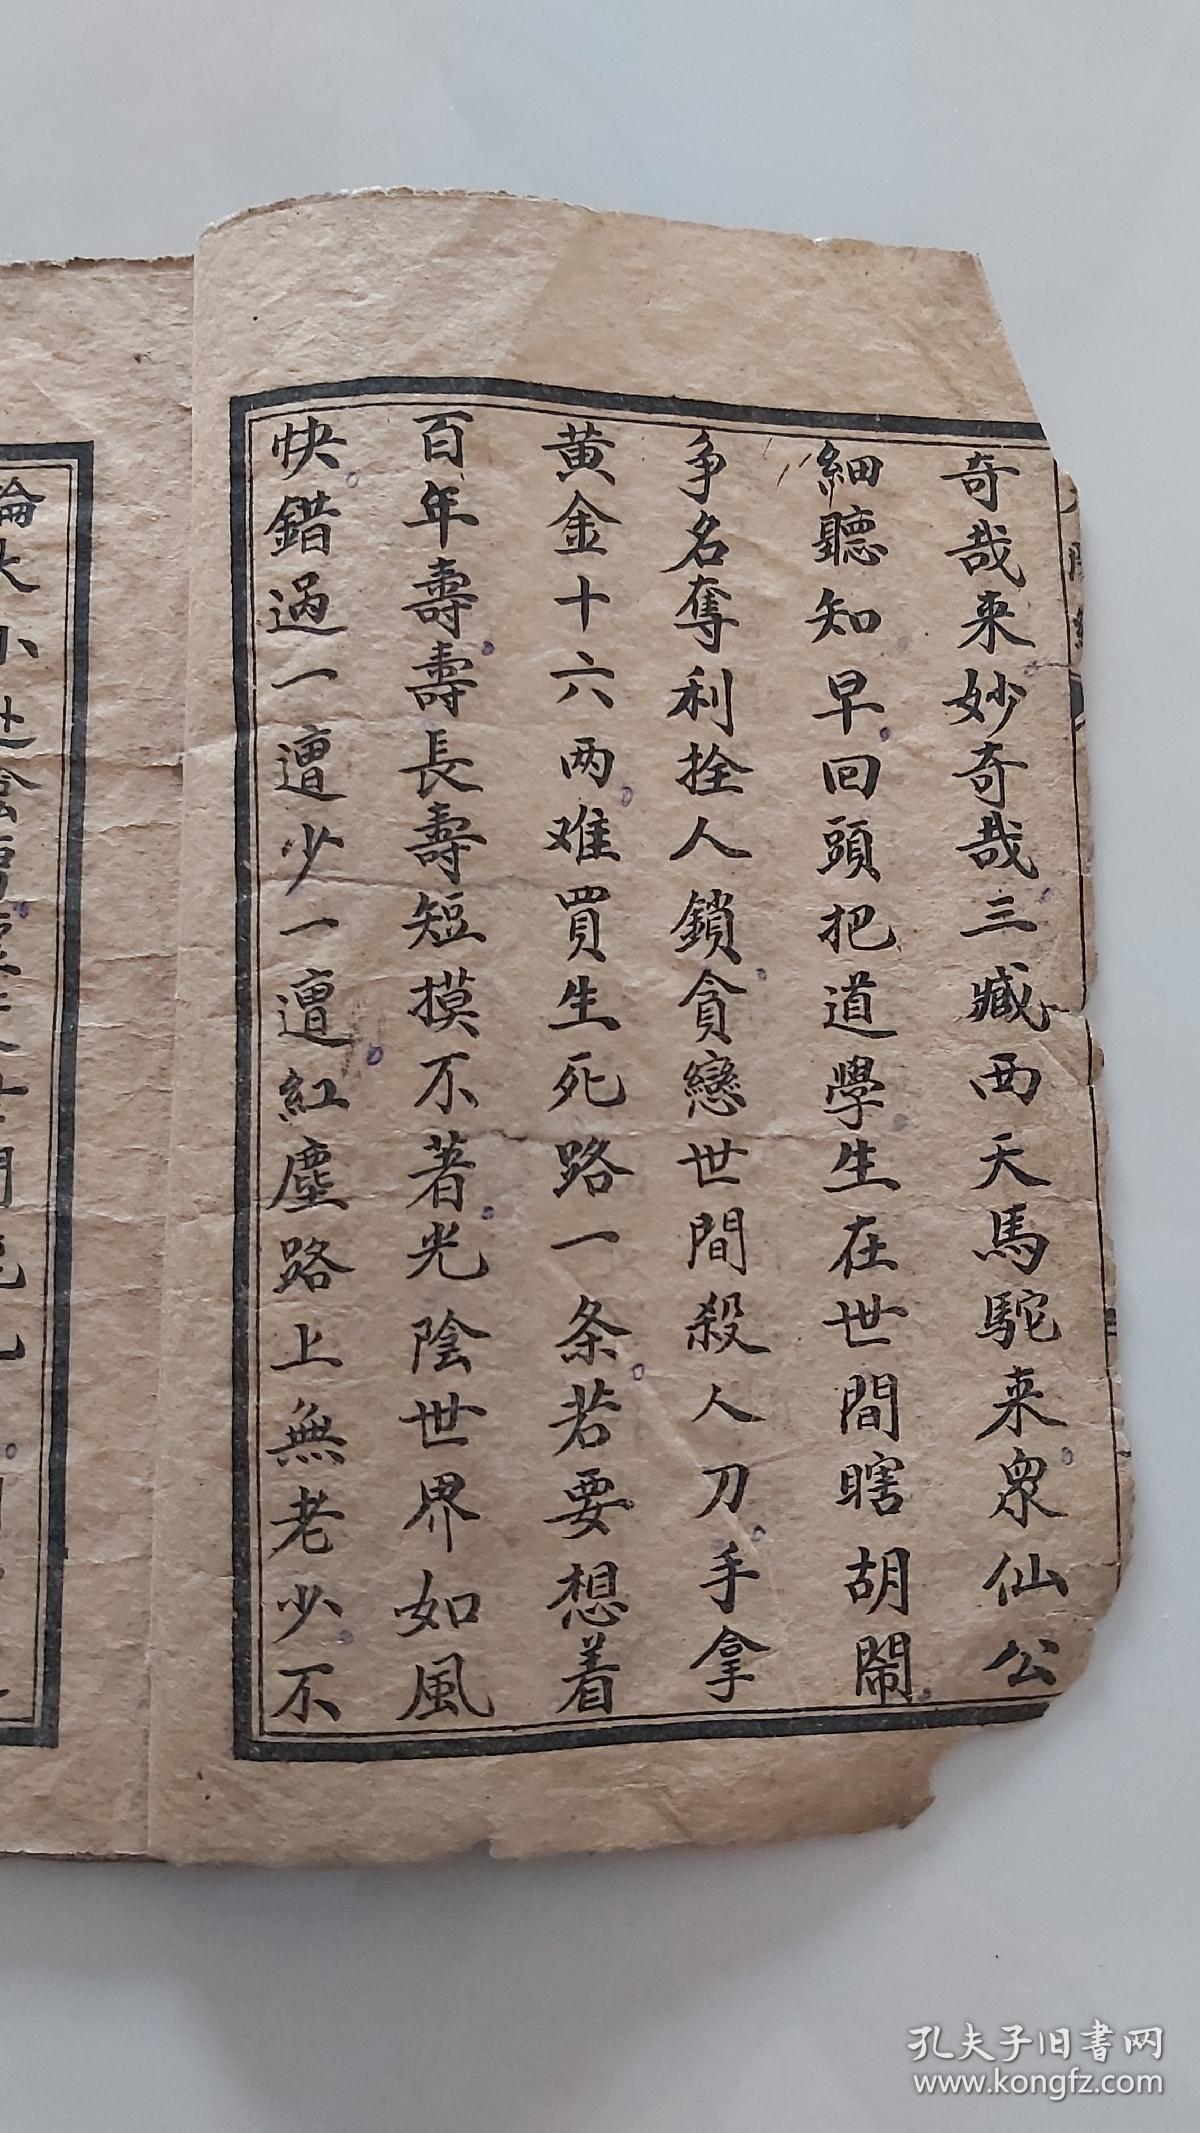 奇哉来妙奇哉三臧西天馬駝来衆仙公
細聽知早回頭把道學生在世間瞎胡鬧
争名奪利拴人鎖貪戀世間殺人刀手拿
黄金十六两难買生死路一条若要想着
百年壽壽長壽短摸不著光陰世界如風
快錯過一遭少一遭紅塵路上無老少不
孔夫子旧书网
www.kongfz.com